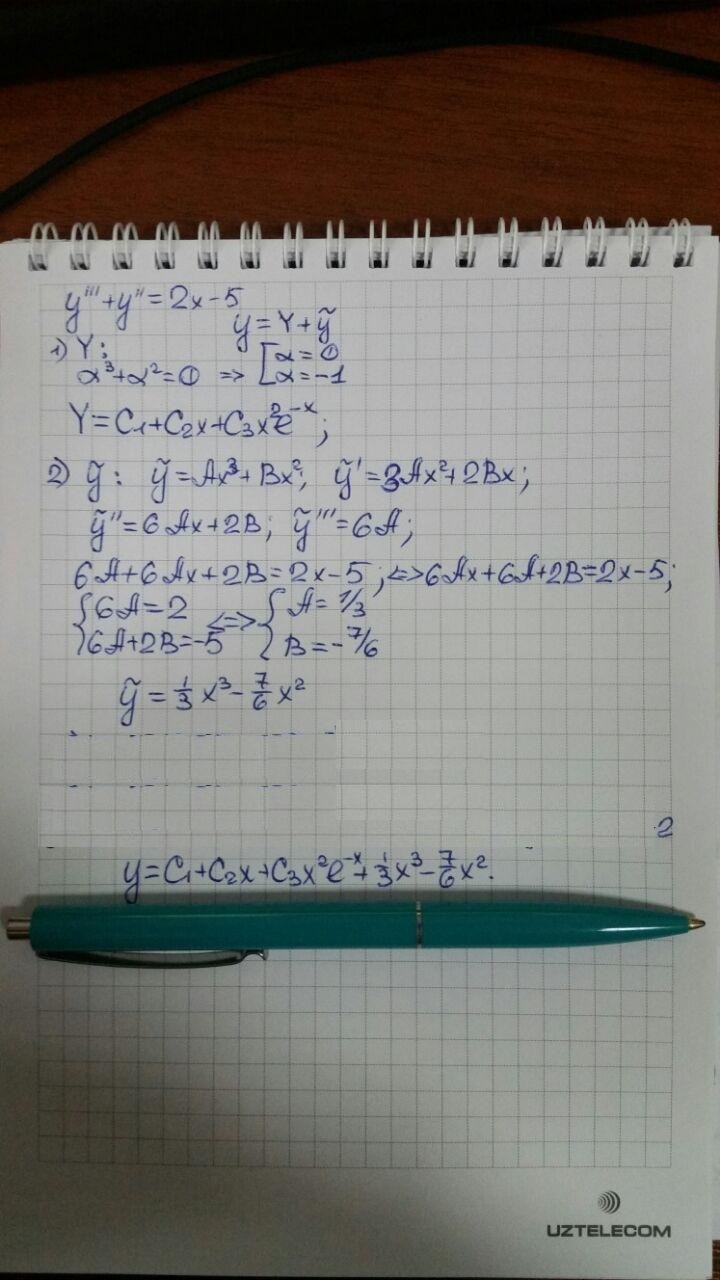 y''' + y'' = 2x - 5
y = Y + ỹ
1) Y:
α³ + α² = 0 => [α = 0
[α = -1
Y = C₁ + C₂x + C₃x²e⁻ˣ;
2) ỹ: ỹ = Ax³ + Bx²; ỹ' = 3Ax² + 2Bx;
ỹ'' = 6Ax + 2B; ỹ''' = 6A;
6A + 6Ax + 2B = 2x - 5; <=> 6Ax + 6A + 2B = 2x - 5;
{6A = 2 <=> {A = 1/3
{6A + 2B = -5 {B = -7/6
ỹ = 1/3 x³ - 7/6 x²
2
y = C₁ + C₂x + C₃x²e⁻ˣ + 1/3 x³ - 7/6 x².
UZTELECOM